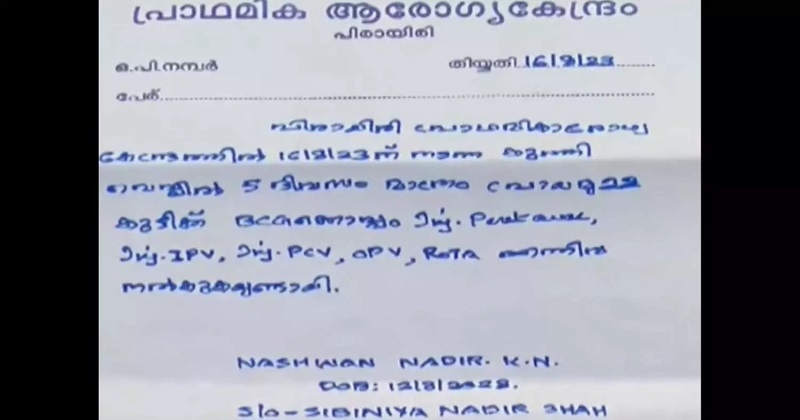 പ്രാഥമിക ആരോഗ്യകേന്ദ്രം
പിരായിരി
ഒ.പി.നമ്പർ തിയ്യതി 16/8/23
പേര്
പിരായിരി പ്രാഥമികാരോഗ്യ
കേന്ദ്രത്തിൽ 16/8/23ന് നടന്ന കുത്തി
വെപ്പിൽ 5 ദിവസം മാത്രം പ്രായമുള്ള
കുട്ടിക്ക് Inj. Pentavac,
Inj. IPV, Inj. PCV, OPV, ROTA എന്നിവ
നൽകുകയുണ്ടായി.
NASHWAN NADIR. K.N.
DOB: 12/8/2023.
S/O - SIBINIYA NADIR SHAH